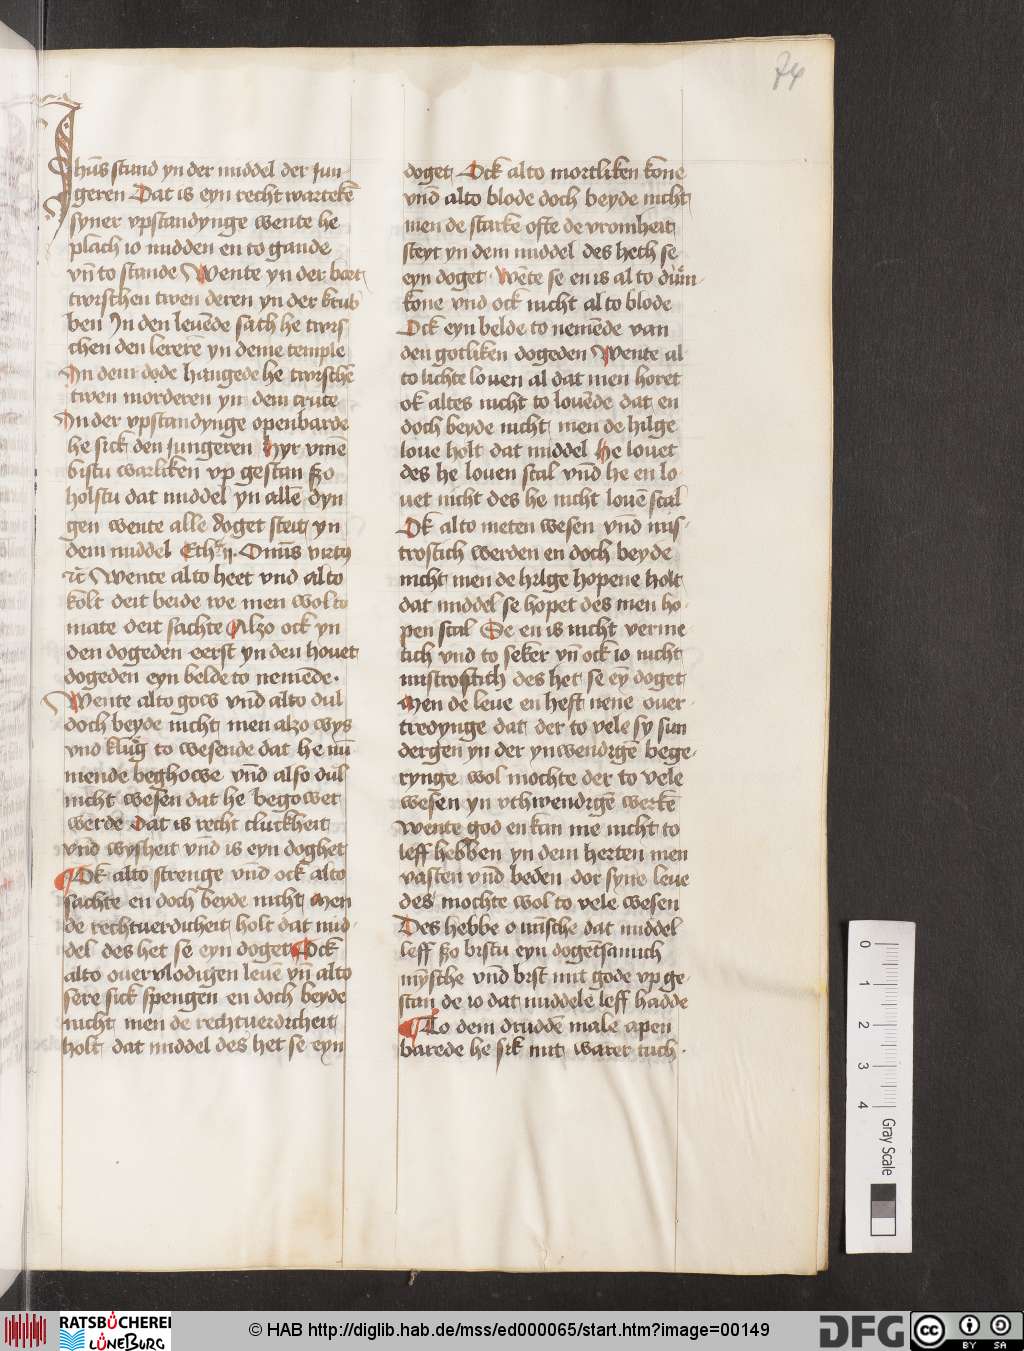 74
Jhūs stund yn der middel der Jun
geren Dat is eyn recht warteke̅
syner vpstandynge wente he
plach io midden en to gande
vn̅ to stande Wente yn der boet
twischen twen deren yn der krub
ben Jn den leue̅de sach he twis
chen den lerere̅ yn deme temple
Jn dem dode hangede he twische̅
twen morderen yn dem cruce
Jn der vpstandynge openbarde
he sick den Jungeren Hyr vme̅
bistu warliken vp gestan szo
holstu dat middel yn alle̅ dyn
gen wente alle doget steit yn
dem middel
Wente al to heet vnd al to
kolt deit beide we men wol to
mate deit sachte Alzo ock yn
den dogeden eerst yn den houet
dogeden eyn belde to neme̅de.
Wente al to gows vn̅d al to dul
doch beyde nicht men alzo wys
vnd klug to wesende dat he nu̅
mende beghowe vn̅d also dul
nicht wesen dat he begowet
werde Dat is recht cluckheit
vn̅d wysheit vn̅d is eyn doghet
Ok al to strenge vn̅d ock al to
sachte en doch beyde nicht Men
de rechtuerdicheit holt dat mid-
del des het se eyn doget Ock
al to ouervlodigen leue yn̅ al to
sere sick spengen en doch beyde
nicht men de rechtuerdicheit
holt dat middel des het se eyn
doget Ock al to mortliken kone
vn̅d al to blode doch beyde nicht
men de starke ofte de vromheit
steyt yn dem middel des heth se
eyn doget We̅te se en is al to du̅m-
kone vnd ock nicht al to blode
Ock eyn belde to neme̅de van
den gotliken dogeden Wente al
to lichte louen al dat men horet
ok altes nicht to loue̅de dat en
doch beyde nicht men de hilge
loue holt dat middel He louet
des he louen scal vn̅d he en lo
uet nicht des he nicht loue̅ scal
Ok al to meten wesen vnd mis-
trostich werden en doch beyde
nicht men de hilge hopene holt
dat middel se hopet des men ho-
pen scal Se en is nicht verme-
tich vnd to seker vn̅ ock io nicht
mistrostich des het se ey̅ doget
Men de leue en heft nene ouer
tredynge dat der to vele sy sun
dergen yn der ynwendige̅ bege-
rynge wol mochte der to vele
wesen yn vthwendige̅ werke̅
Wente god en kan me nicht to
leff hebben yn dem herten men
vasten vn̅d beden dor syne leue
des mochte wol to vele wesen
Des hebbe o mi̅sche dat middel
leff szo bistu eyn dogetsamich
my̅sche vn̅d bist mit gode vp ge-
stan de io dat middele leff hadde
To dem drudde̅ male apen
barede he sik mit water tuch.
0
1
2
3
4
Gray Scale
RATSBÜCHEREI
LÜNEBURG
© HAB http://diglib.hab.de/mss/ed000065/start.htm?image=00149
DFG
cc
BY SA